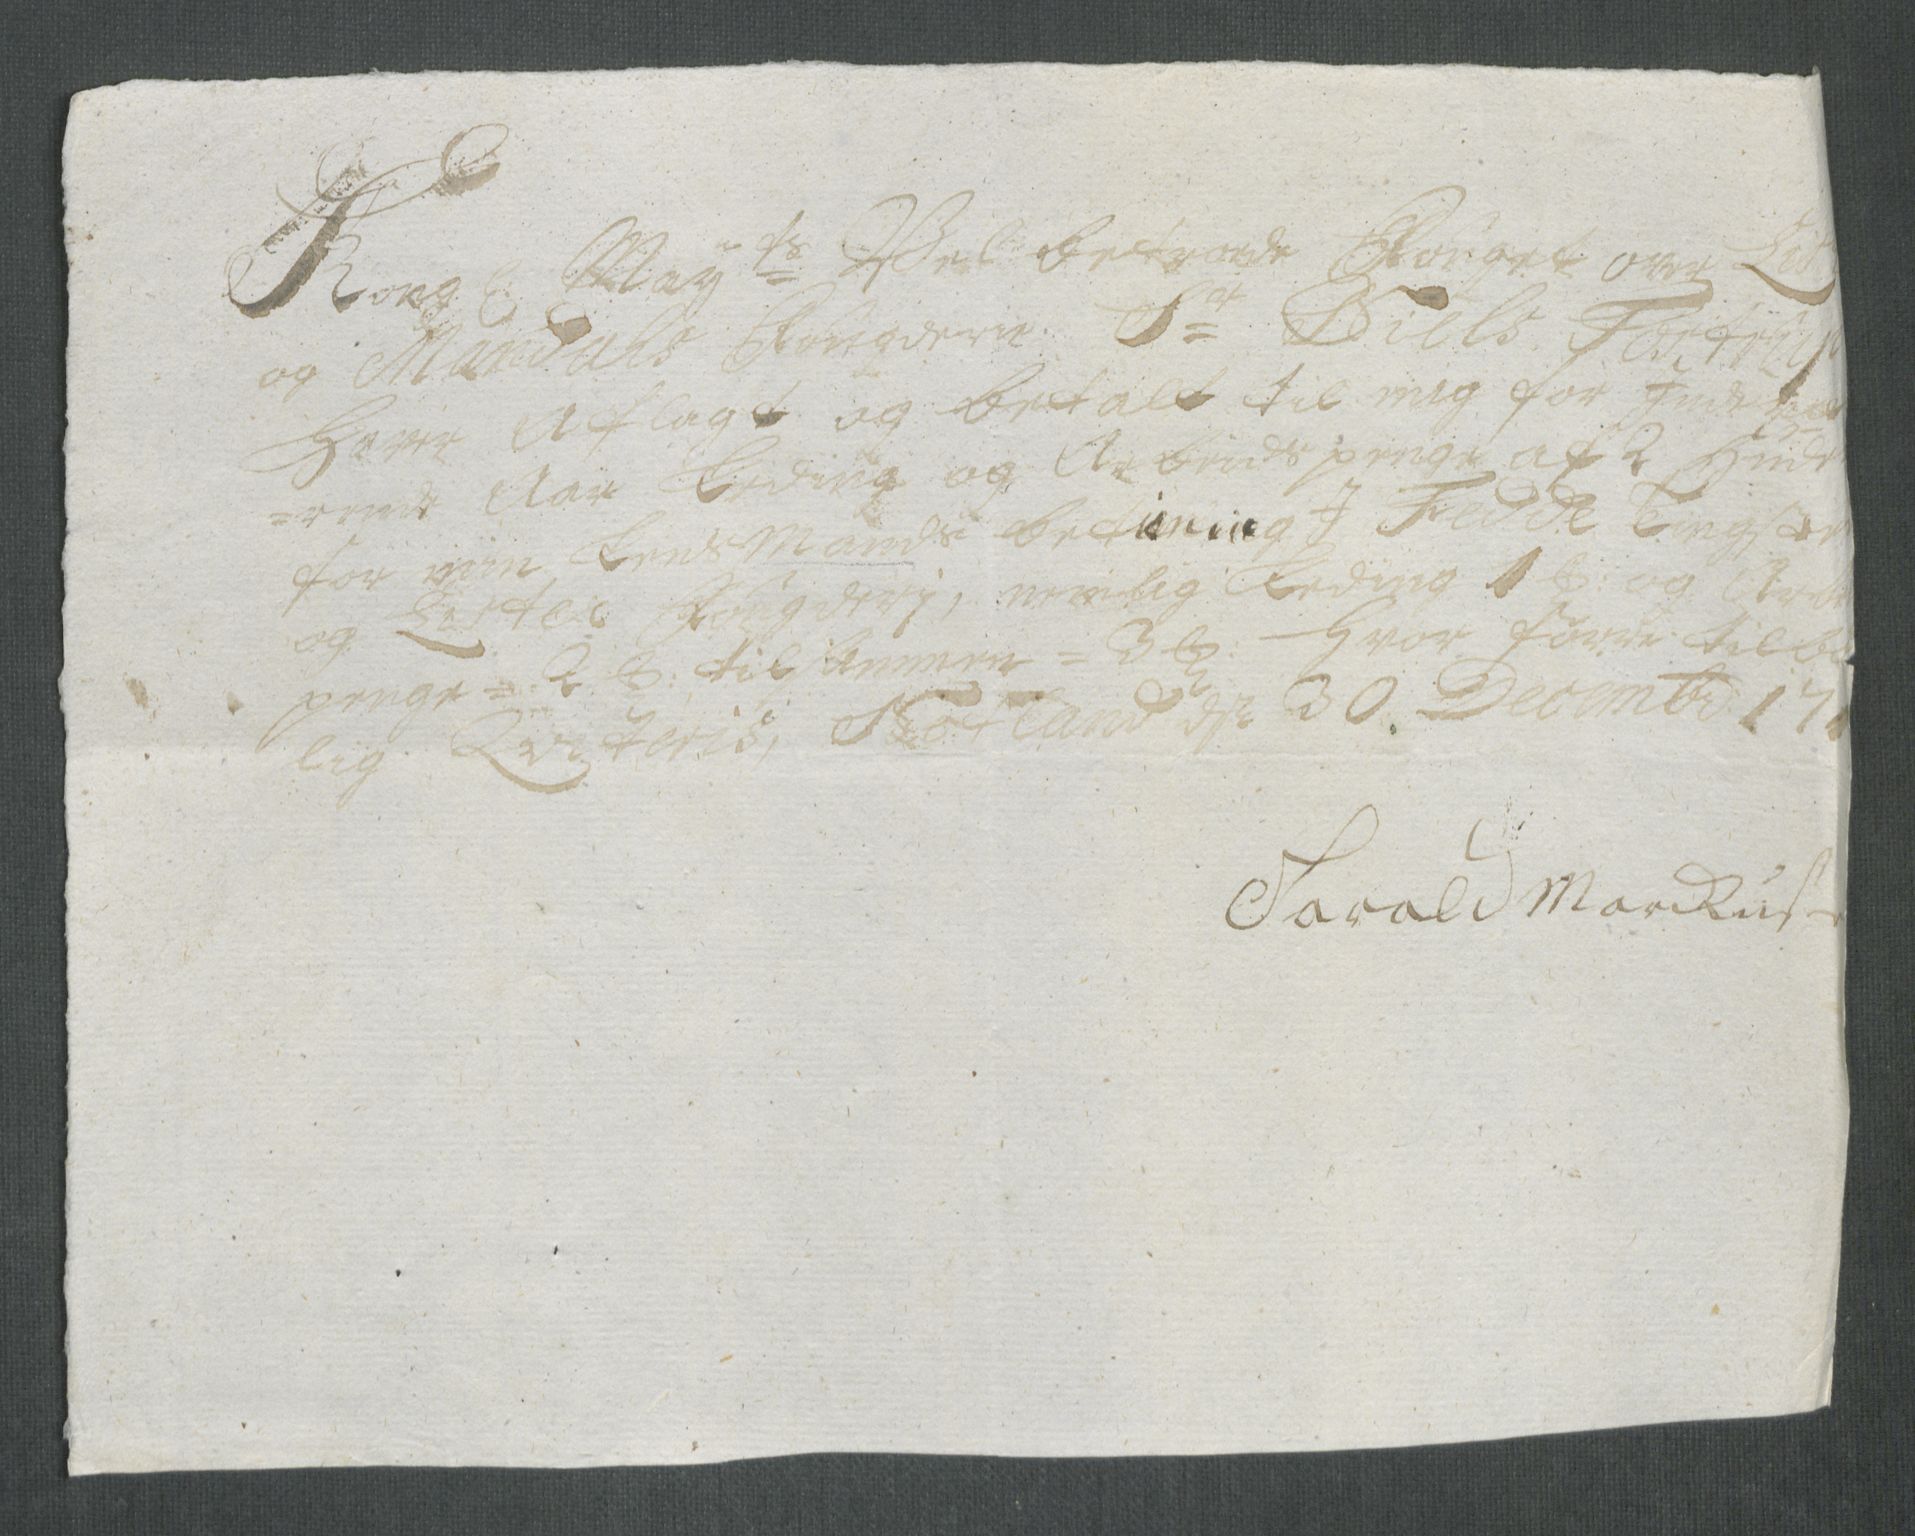 Kong: Mayts Vel betroede Fouget over List
og Mandals Fougderie Sr Niels
Haver Aflagt og betalt til mig for Inde
=rende Aar Leding og Arbeids penge af 2 Hude
for min LensMands betiening I Fedde Tingst
og Lister Fougderj, nemlig Leding 1 d: og Arb
penge = 2 d: til sammen = 3 d: Hvor forre tilbø
lig Qviteris, den 30 Decembr 17
Tarald Markus